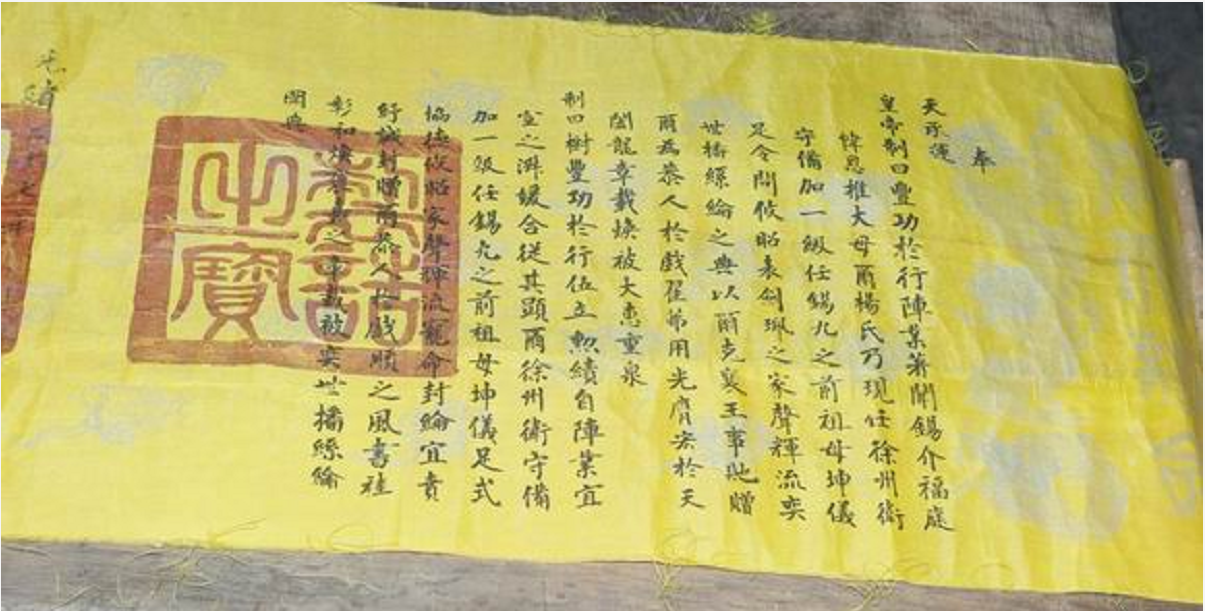 奉
天承運
皇帝制曰豐功於行陣業著開錫介福庭
推大母爾楊氏乃現任徐州衛
守備加一級任錫九之前祖母坤儀
足令問攸昭表劍珮之家聲輝流奕
世播絲綸之典以爾克襄王事貤贈
爾為恭人於戲翟茀用光膺宏於天
閣龍章載煥被大惠重泉
制曰樹豐功於行伍立勲績自陣業宜
室之淵媛合從其顯爾徐州衛守備
加一級任錫九之前祖母坤儀足式
協德攸昭家聲輝流寵命封綸宜責
紓誠封贈爾恭人於戲順之風書種
彰和煥之章載被奕世播絲綸
閣典
誥之寶
光緒